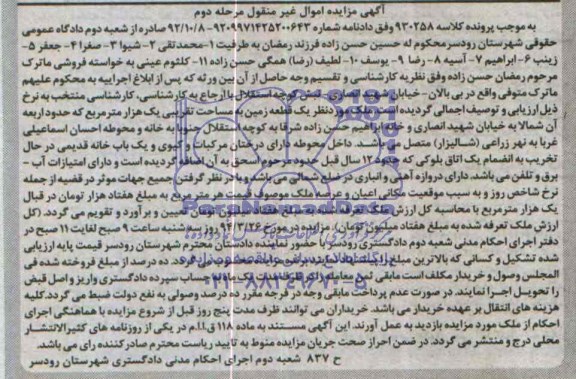 آگهی مزایده اموال غیر منقول مرحله دوم
به موجب پرونده کلاسه ۹۳۰۲۵۸ وفق دادنامه شماره ۹۲۰۹۹۷۱۴۳۵۲۰۰۶۴۳-۹۲/۱۰/۸ صادره از شعبه دوم دادگاه عمومی
حقوقی شهرستان رودسر محکوم له حسین حسن زاده فرزند رمضان به طرفیت ۱-محمدتقی ۲- شیوا ۳- صغرا ۴- جعفر ۵-
زینب ۶- ابراهیم ۷- آسیه ۸- رضا ۹- یوسف ۱۰- لطیف (رضا) همگی حسن زاده ۱۱- کلثوم عینی به خواسته فروشی ماترک
مرحوم رمضان حسن زاده وفق نظریه کارشناسی و تقسیم وجه حاصل از آن بین ورثه که پس از ابلاغ اجراییه به محکوم علیهم
ماترک متوفی واقع در بی بالان - خیابان شهید انصاری - نبش کوچه استقلال با ارجاع به کارشناسی، کارشناسی منتخب به نرخ
ذیل ارزیابی و توصیف اجمالی گردیده است. ملک موردنظر یک قطعه زمین به مساحت تقریبی یک هزار مترمربع که حدود اربعه
آن شمالا به خیابان شهید انصاری و خانه ابراهیم حسن زاده شرقا به کوچه استقلال جنوبا به خانه و محوطه احسان اسماعیلی
غربا به نهر زراعی (شالیزار) متصل می باشد. داخل محوطه دارای درختان مرکبات و کیوی و یک باب خانه قدیمی در حال
تخریب به انضمام یک اتاق بلوکی که حدود ۱۲ سال قبل حدود مرحوم اسحق به آن اضافه گردیده است و دارای امتیازات آب -
برق و تلفن می باشد. دارای دروازه آهنی و انباری در ضلع شمالی می باشد و با در نظر گرفتن جمیع جهات موثر در قضیه از جمله
نرخ شاخص روز و به سبب موقعیت مکانی اعیان و عرصه ملک موصوف قیمت هر مترمربع به مبلغ هفتاد هزار تومان در قبال
یک هزار مترمربع با محاسبه کل ارزش ملک تعرفه شده به مبلغ هفتاد میلیون تومان تعیین و برآورد و تقویم می گردد. (کل
ارزش ملک تعرفه شده به مبلغ هفتاد میلیون تومان)، مزایده در مورخ ۹۴/۳/۲۶ روز سه شنبه ساعت ۹ صبح لغایت ۱۱ صبح در
دفتر اجرای احکام مدنی شعبه دوم دادگستری رودسر با حضور نماینده دادستان محترم شهرستان رودسر قیمت پایه ارزیابی
شده تشکیل و کسانی که بالاترین مبلغ
ده درصد از مبلغ فروخته شده فی
المجلس وصول و خریدار مکلف است مابقی ثمن معامله را
به حساب سپرده دادگستری واریز و اصل قبض
را تحویل اجرا نمایند. در صورت عدم پرداخت مابقی وجه در فرجه مقرر ده درصد وصولی به نفع دولت ضبط می گردد. کلیه
هزینه های انتقال بر عهده خریدار می باشد. خریداران می توانند ظرف مدت پنج روز قبل از شروع مزایده با هماهنگی اجرای
احکام از ملک مورد مزایده بازدید به عمل آورند. این آگهی مستند به ماده ۱۱۸ ق.ا.ا.م در یکی از روزنامه های کثیرالانتشار
محلی درج و منتشر می گردد. در ضمن احراز صحت جریان مزایده منوط به تایید ریاست محترم صادرکننده رای می باشد.
ح ۸۳۷ شعبه دوم اجرای احکام مدنی دادگستری شهرستان رودسر
ParsNamadData
۰۲۱-۸۸۳۴۹۶۷۰-۵